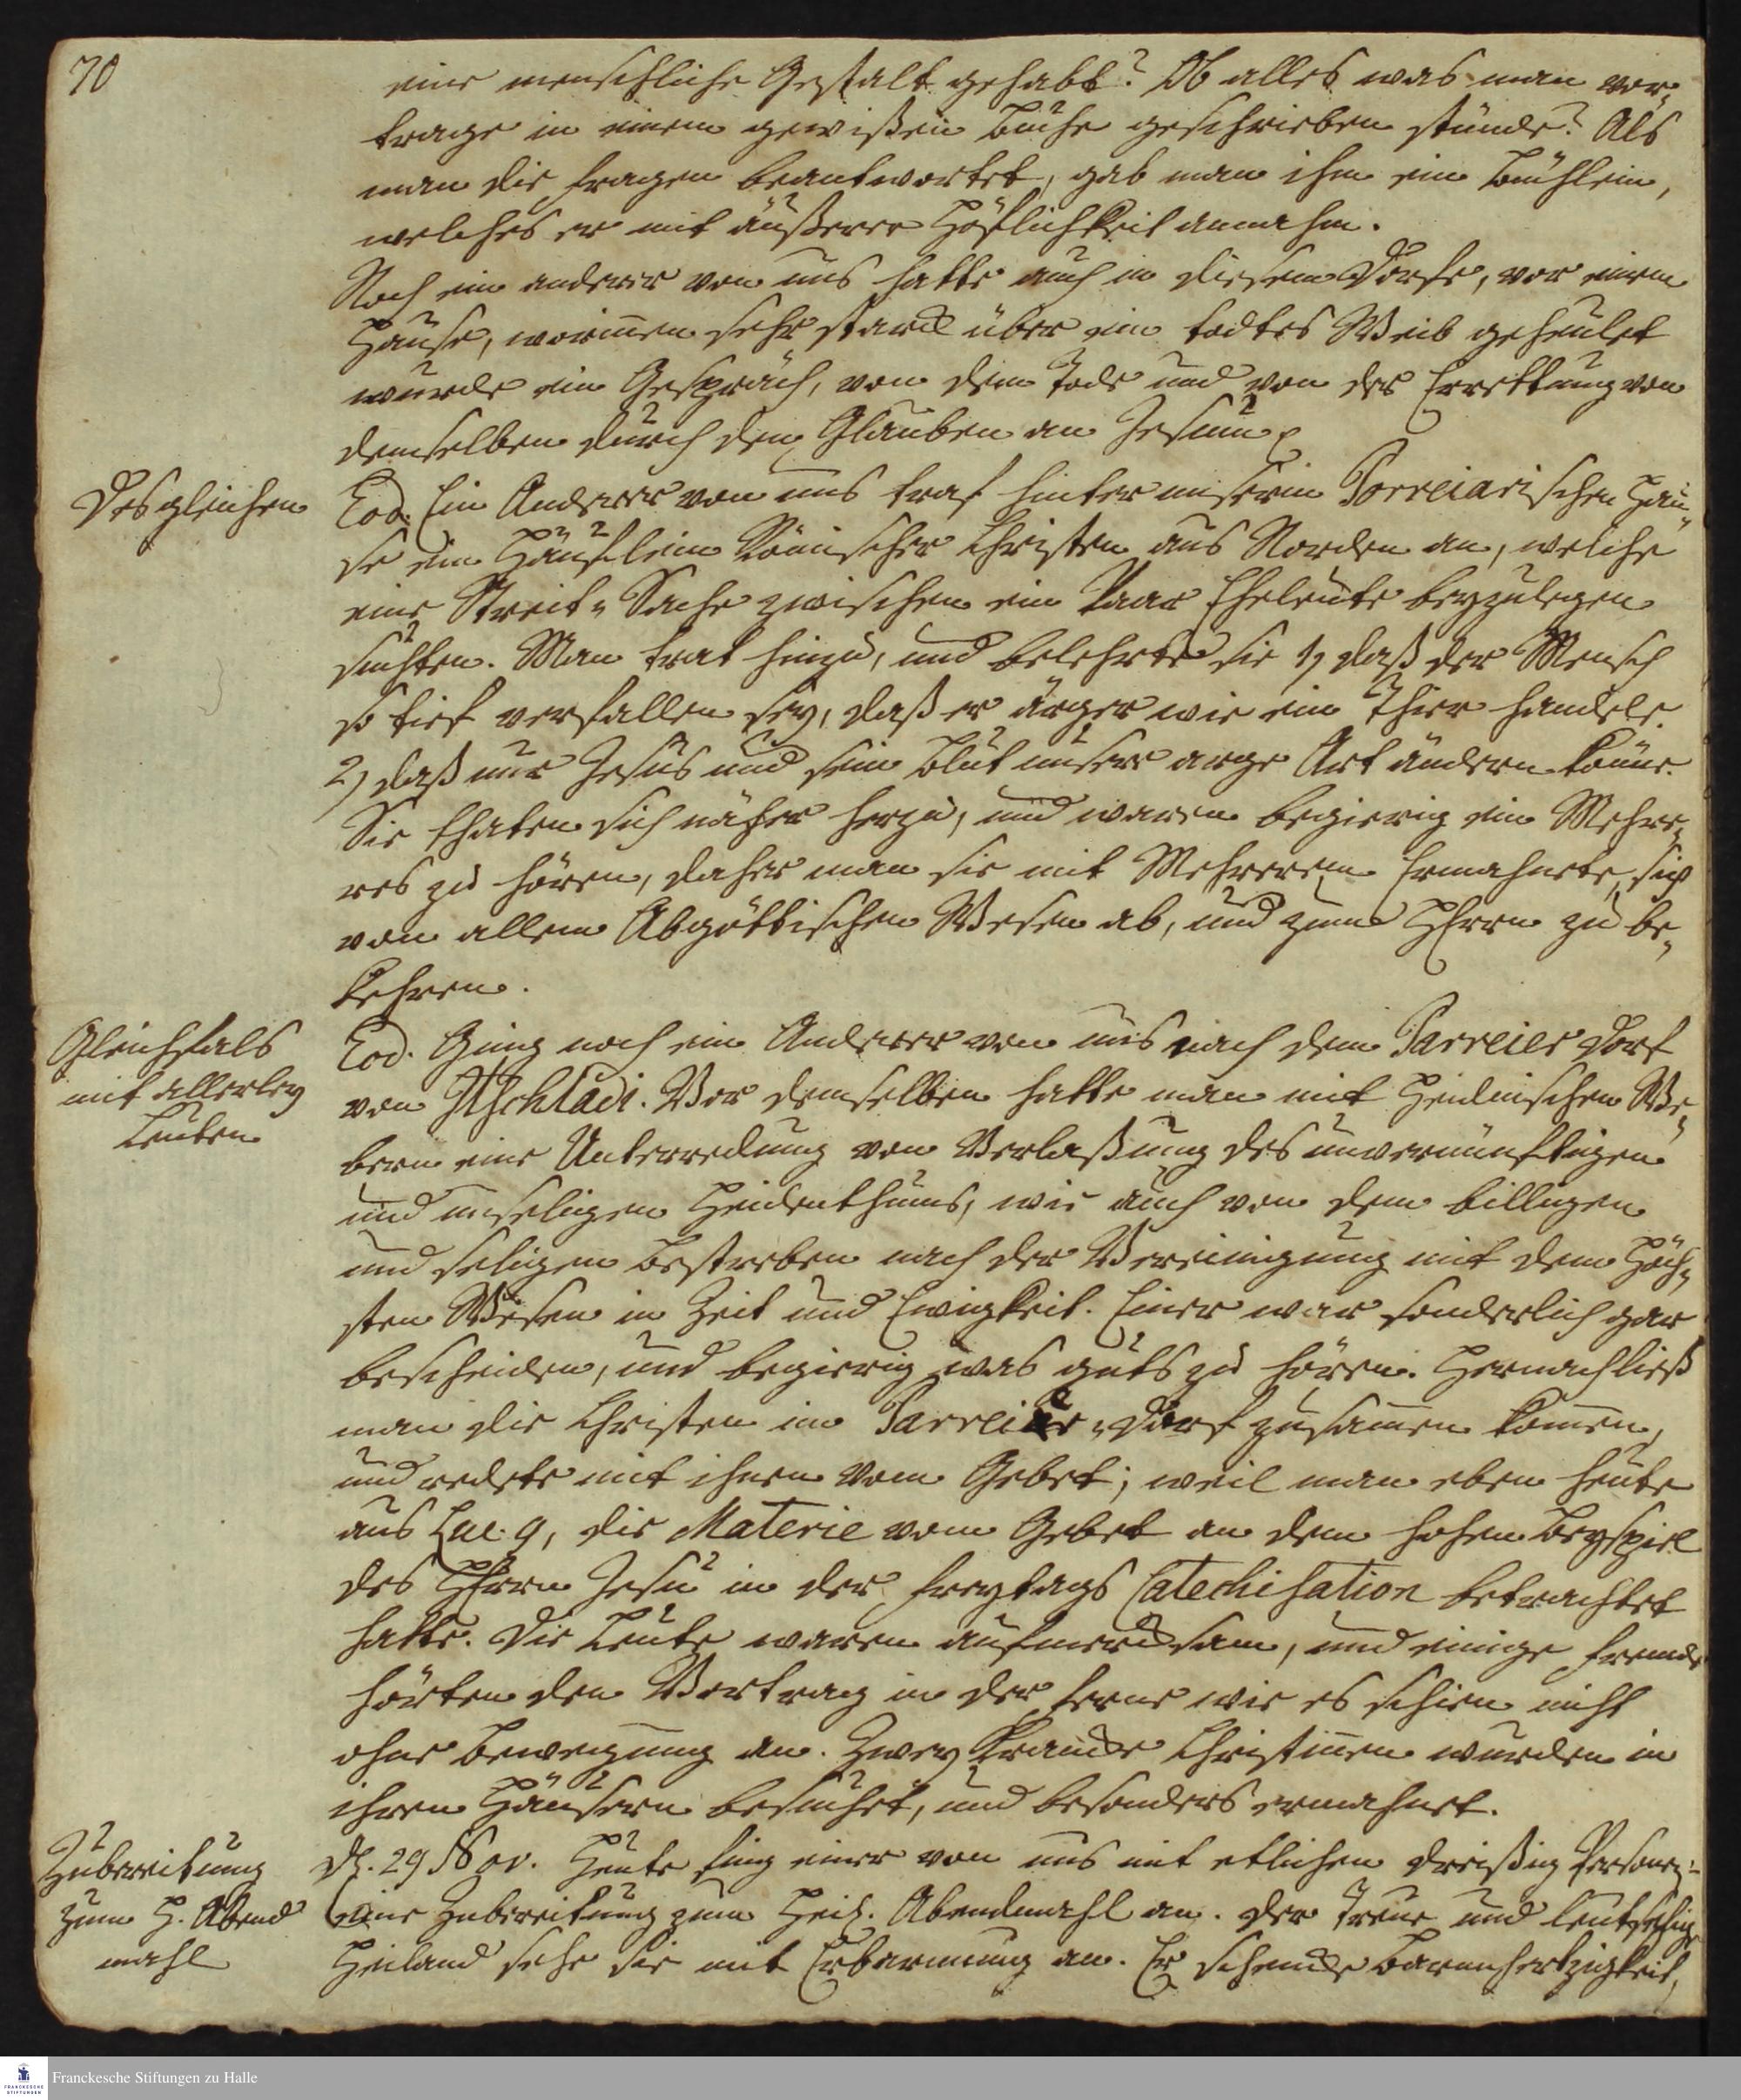 70
eine menschliche Gestalt gehabt? Ob alles was man vor„
trage in einem gewißen Buche geschrieben stünde? Als
man die Fragen beantwortet, gab man ihm ein Büchlein,
welches er mit äußerer Höflichkeit annahm.
Noch ein anderer von uns hatte auch in diesem Dorfe, vor einem
Hause, worinnen sehr starck über ein todtes Weib geheulet
wurde ein Gespräch, von dem Tode und von der Errettung von
demselben durch den Glauben an Jesum
Desgleichen
Eod. Ein Anderer von uns traf hinter unserm Porreiarischen Hau„
se ein Häuflein Römischer Christen aus Norden an, welche
eine Streit„Sache zwischen ein Paar Eheleute beyzulegen
suchten. Man trat hinzu, und belehrte sie 1) daß der Mensch
so tief verfallen sey, daß er ärger wie ein Thier handele.
2) daß nur Jesus und sein Blut unsere arge Art ändern könne.
Sie thaten sich näher herzu, und waren begierig ein Mehre„
res zu hören, daher man sie mit Mehrerem Ermahnete, sich
von allem Abgöttischen Wesen ab, und zum HErrn zu be„
kehren.
Gleichfals
mit allerley
Leuten
Eod. Ging noch ein Anderer von uns nach dem Parreier Dorf
von Ittschladi. Vor demselben hatte man mit Heidnischen We„
bern eine Unterredung von Verlaßung des unvernünftigen
und unseligen Heidenthums, wie auch von dem billigen
und seligen Bestreben nach der Vereinigung mit dem Höch„
sten Wesen in Zeit und Ewigkeit. Einer war sonderlich gar
bescheiden, und begierig was guts zu hören. Hernach ließ
man die Christen im Parreier„Dorf zusammen kommen,
und redete mit ihnen vom Gebet; weil man eben heute
aus Luc. 9, die Materie vom Gebet an dem hohen Beyspiel
des HErrn Jesu in der Freytags Catechisation betrachtet
hatte. Die Leute waren aufmercksam, und einige Fremde
hörten den Vortrag in der Ferne wie es schien nicht
ohne Bewegung an. Zwey Krancke Christinnen wurden in
ihren Häusern besuchet, und besonders ermahnet.
Zubereitung
zum H. Abend
mahl
D. 29 Nov. Heute fing einer von uns mit etlichen dreißig Personen
eine Zubereitung zum Heil. Abendmahl an. Der Treue und leutselige
Heiland sehe sie mit Erbarmung an. Er schencke Barmhertzigkeit,
Franckesche Stiftungen zu Halle
FRANCKESCHE
STIFTUNGEN